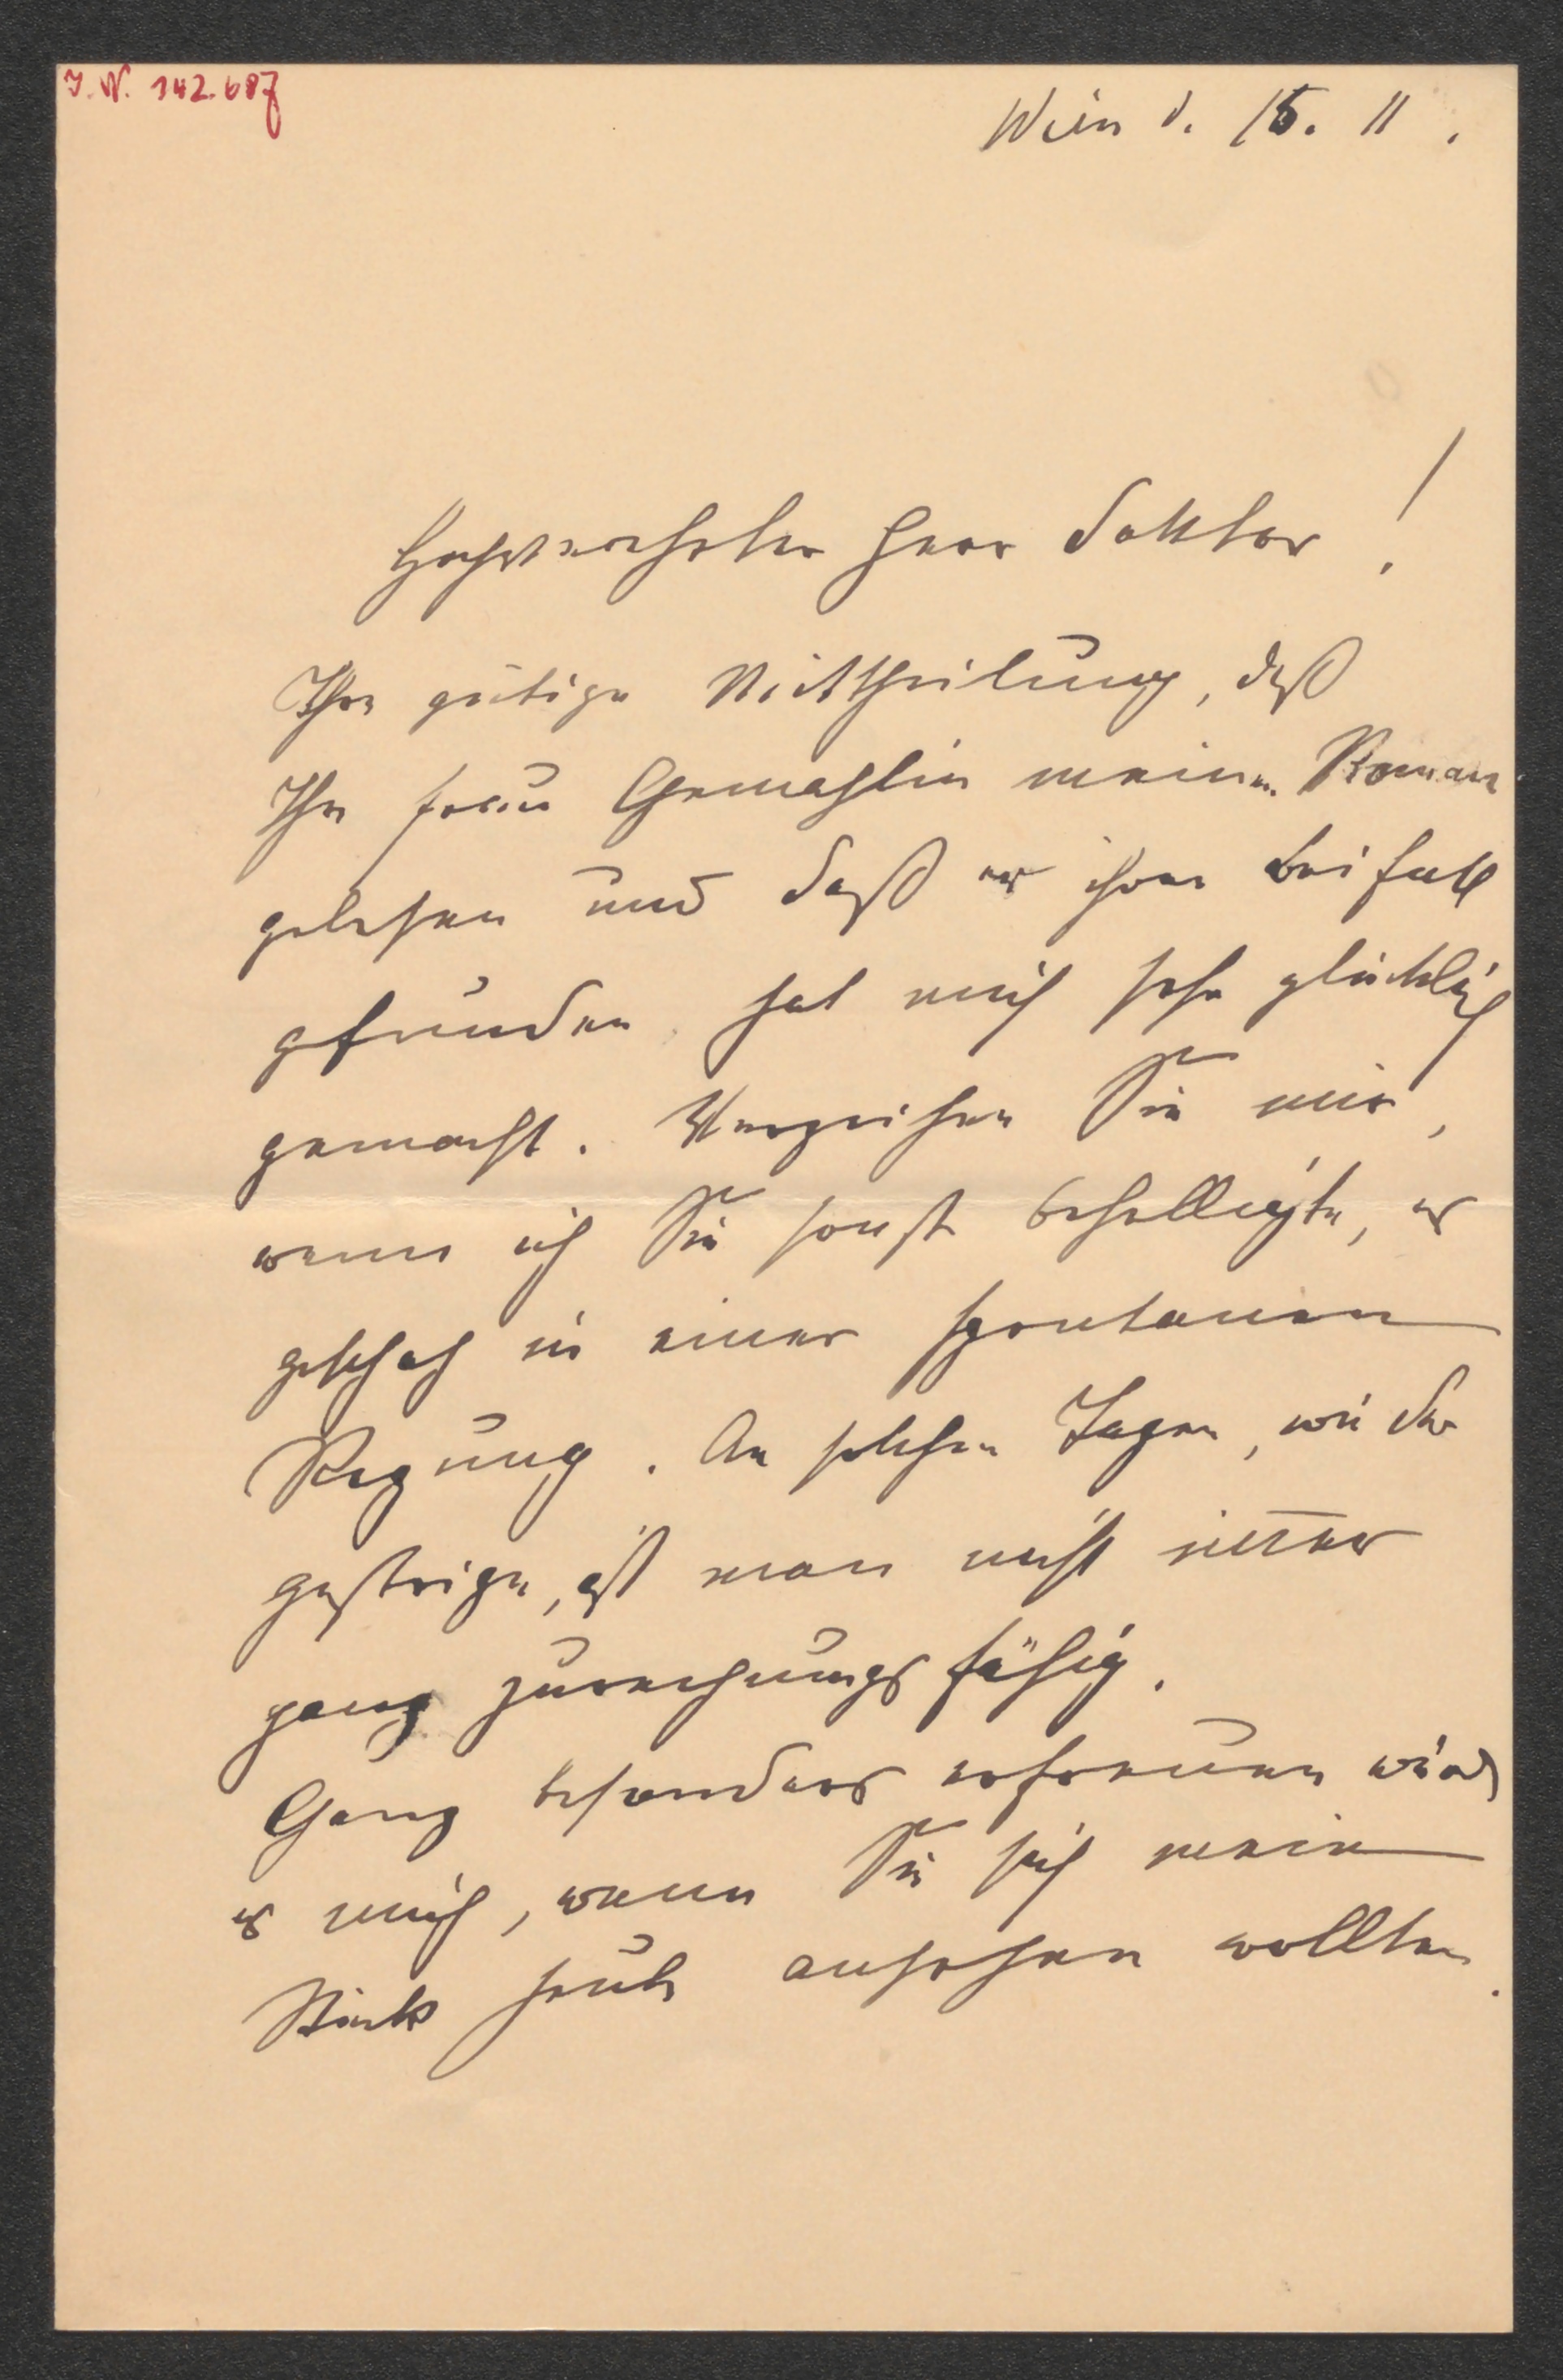 I.N. 142.687
Wien d. 15. 11.
Hochverehrter Herr Doktor!
Ihre gütige Mittheilung, daß
Ihre Frau Gemahlin meinen Roman
gelesen und daß er ihren Beifall
gefunden hat mich sehr glücklich
gemacht. Verzeihen Sie mir,
wenn ich Sie sonst behelligte, es
geschah in einer spontanen
Regung. An solchen Tagen, wie der
gestrige, ist man nicht im̅er
ganz zurechnungsfähig.
Ganz besonders erfreuen würde
es mich, wenn Sie sich mein
Stück heute ansehen wollten.